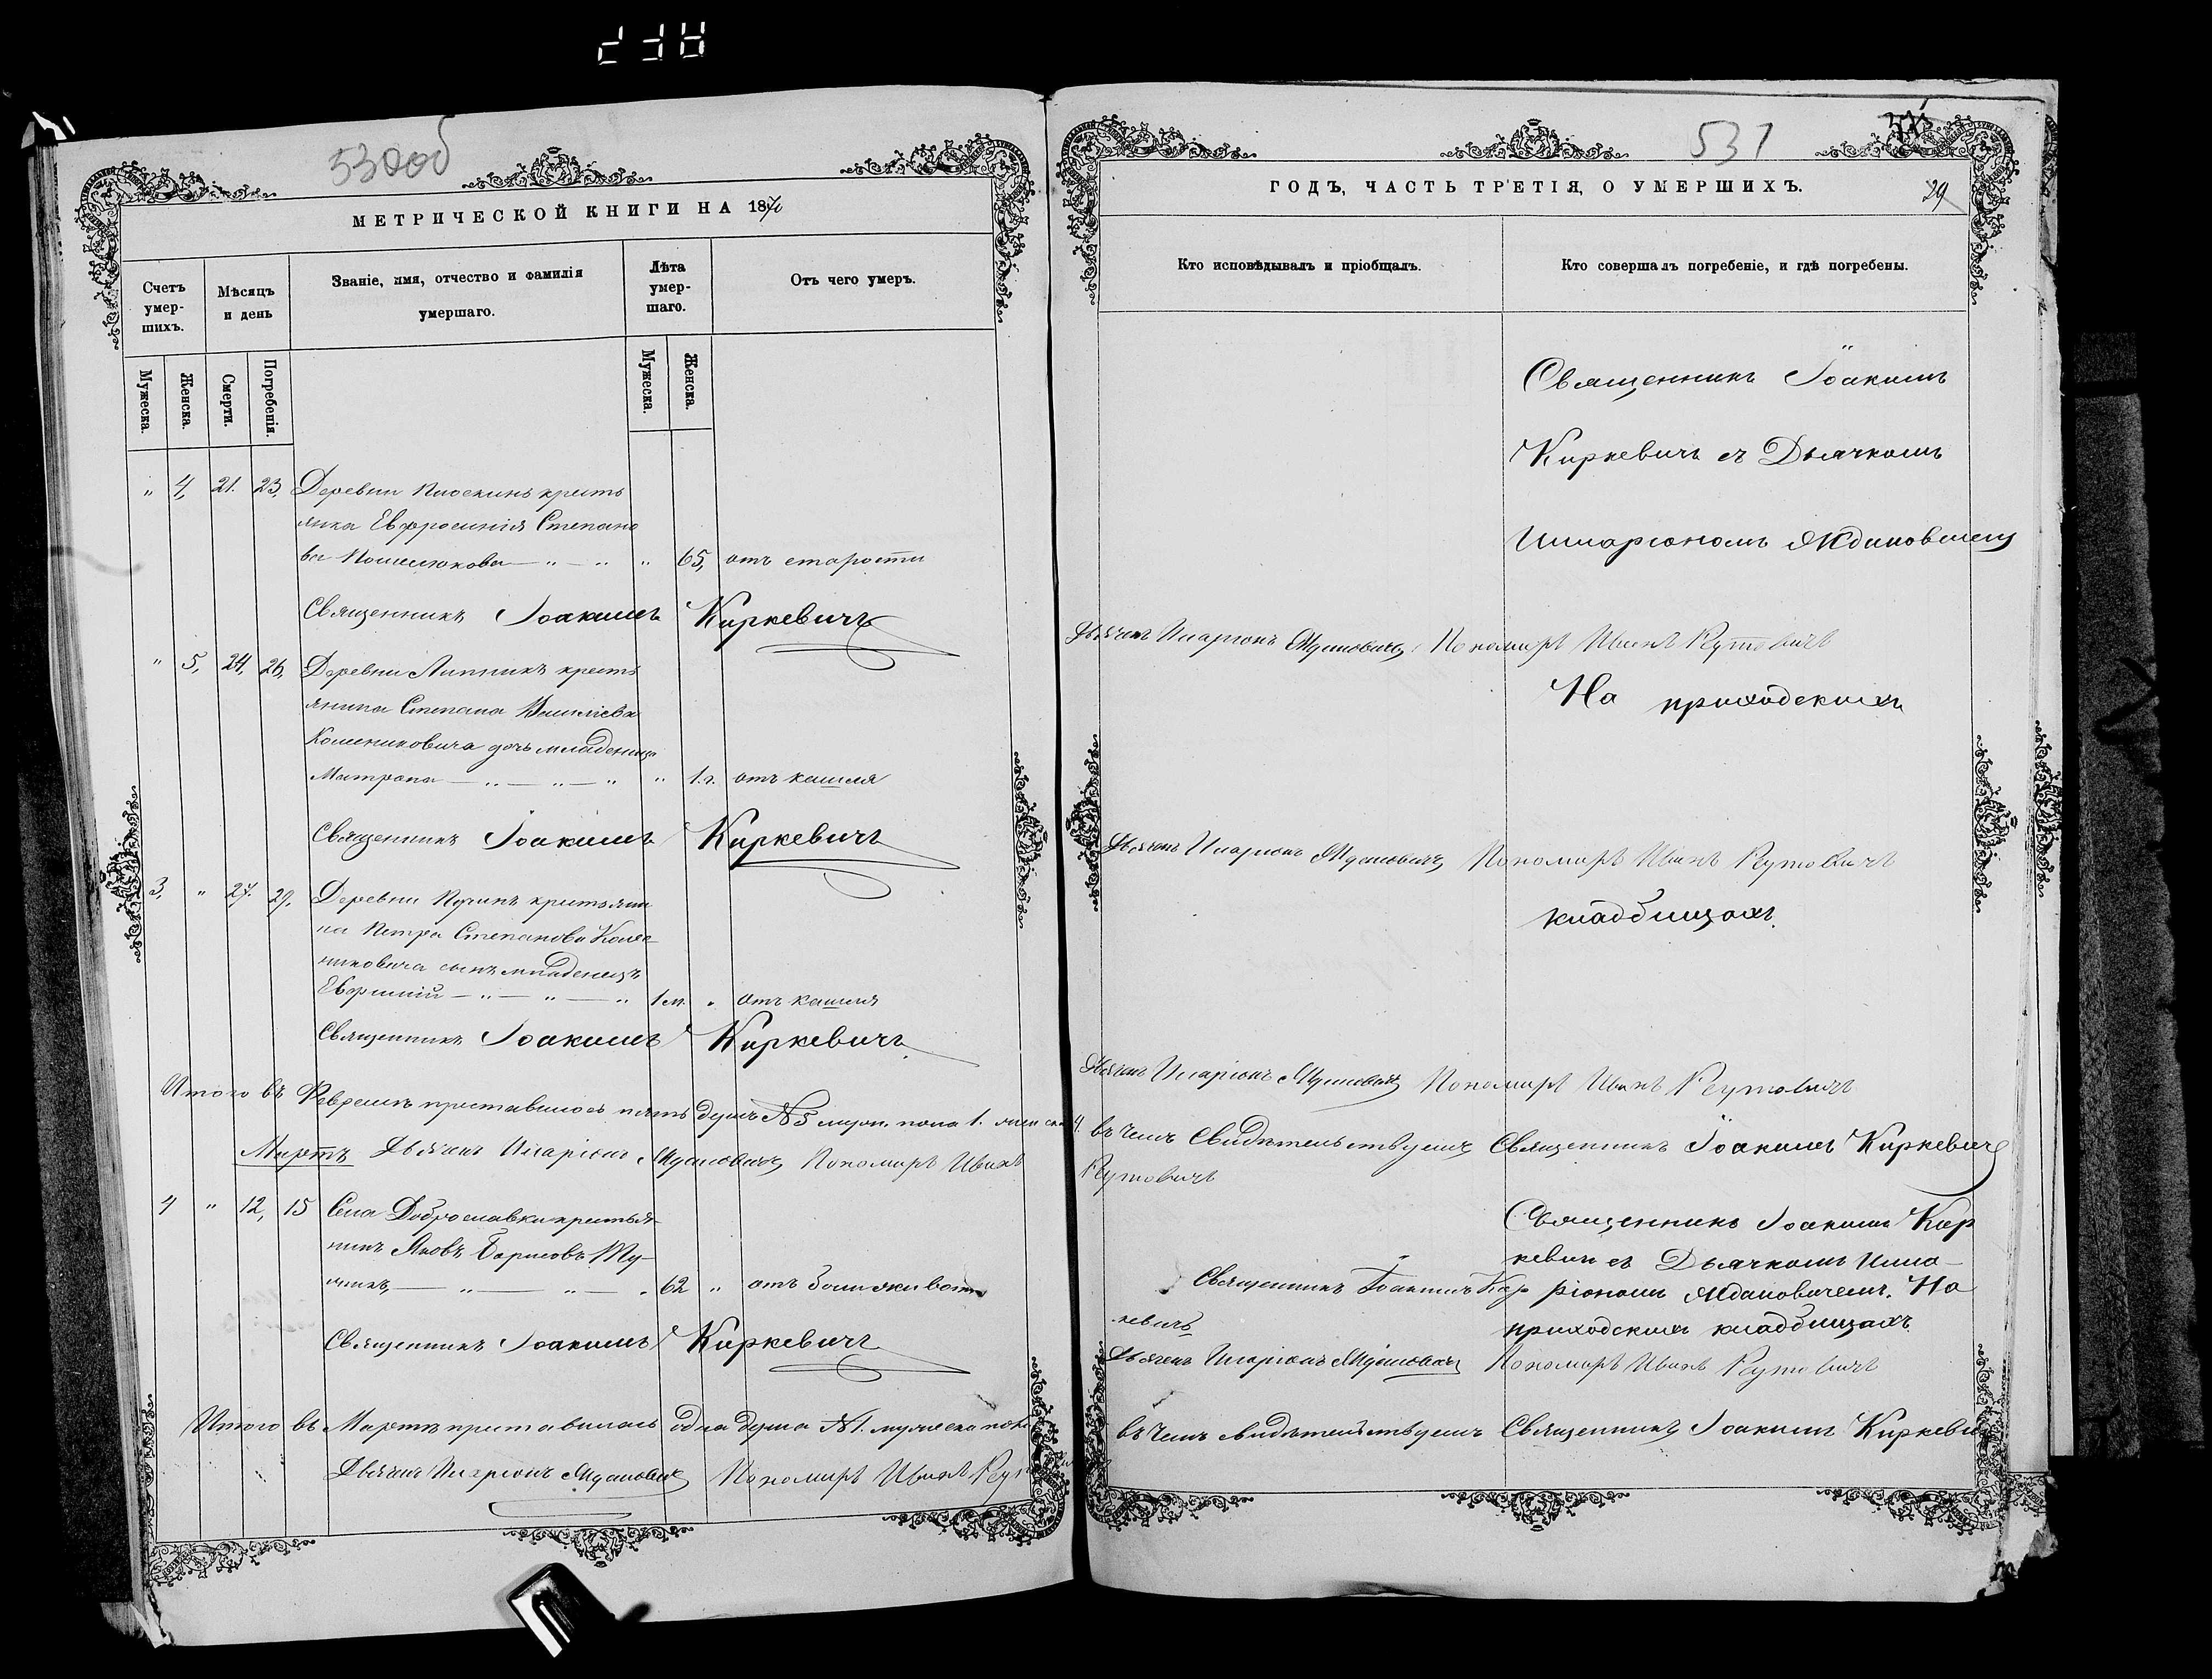 530об
МЕТРИЧЕСКОЙ КНИГИ НА 1870
Счетъ умер-шихъ.
Мѣсяцъ и день
Званіе, имя, отчество и фамилія умершаго.
Лѣта умер-шаго.
Отъ чего умеръ.
Мужеска.
Женска.
Смерти.
Погребенія.
Мужеска.
Женска.
„ 4, 21. 23, Деревни кресть
янка Евфросинія Степано
ва „ „ „ 65, отъ старости
Священникъ Іоакимъ Киркевичъ
„ 5, 24, 26, Деревни Липникъ кресть
янина Степана
дочь младеница
Матрона „ „ „ „ 1.г. отъ кашля
Священникъ Іоакимъ Киркевичъ
3, „ 27. 29, Деревни крестьяни
на Петра Степанова Колес
никовича сынъ младенецъ
„ „ „ 1 м. „ отъ кашля
Священникъ Іоакимъ Киркевичъ
Итого въ Февралѣ преставилось пять душъ № 5 муж. пола 1.
Мартъ Дьячекъ Иларіонъ Ждановичъ Пономарь Иванъ
4 „ 12, 15 Села Доброславки крестья-
нинъ Яковъ Борисовъ
„ „ „ 62 „ отъ боли живота
Священникъ Іоакимъ Киркевичъ
Итого въ Мартѣ преставилась одна душа № 1. мужеска пола
Дьячекъ Иларіонъ Ждановичъ Пономарь Иванъ
531
29
ГОДЪ, ЧАСТЬ ТРЕТІЯ, О УМЕРШИХЪ.
Кто исповѣдывалъ и пріобщалъ.
Кто совершалъ погребеніе, и гдѣ погребены.
Священникъ Іоакимъ
Киркевичъ съ Дьячкомъ
Иларіономъ Ждановичемъ
Дьячекъ Иларіонъ Ждановичъ Пономарь Иванъ Рутовичъ
На приходскихъ
Дьячекъ Иларіонъ Ждановичъ Пономарь Иванъ Рутовичъ
кладбищахъ.
Дьячекъ Иларіонъ Ждановичъ Пономарь Иванъ Рутовичъ
4. въ чемъ свидѣтельствуемъ Священникъ Іоакимъ Киркевичъ
Рутовичъ
Священникъ Іоакимъ Кир
кевичъ съ Дьячкомъ Ила-
Священникъ Іоакимъ Кир
ріономъ Ждановичемъ. На
кевичъ
приходскихъ кладбищахъ.
Дьячекъ Иларіонъ Ждановичъ Пономарь Иванъ Рутовичъ
въ чемъ свидѣтельствуемъ Священникъ Іоакимъ Киркевичъ